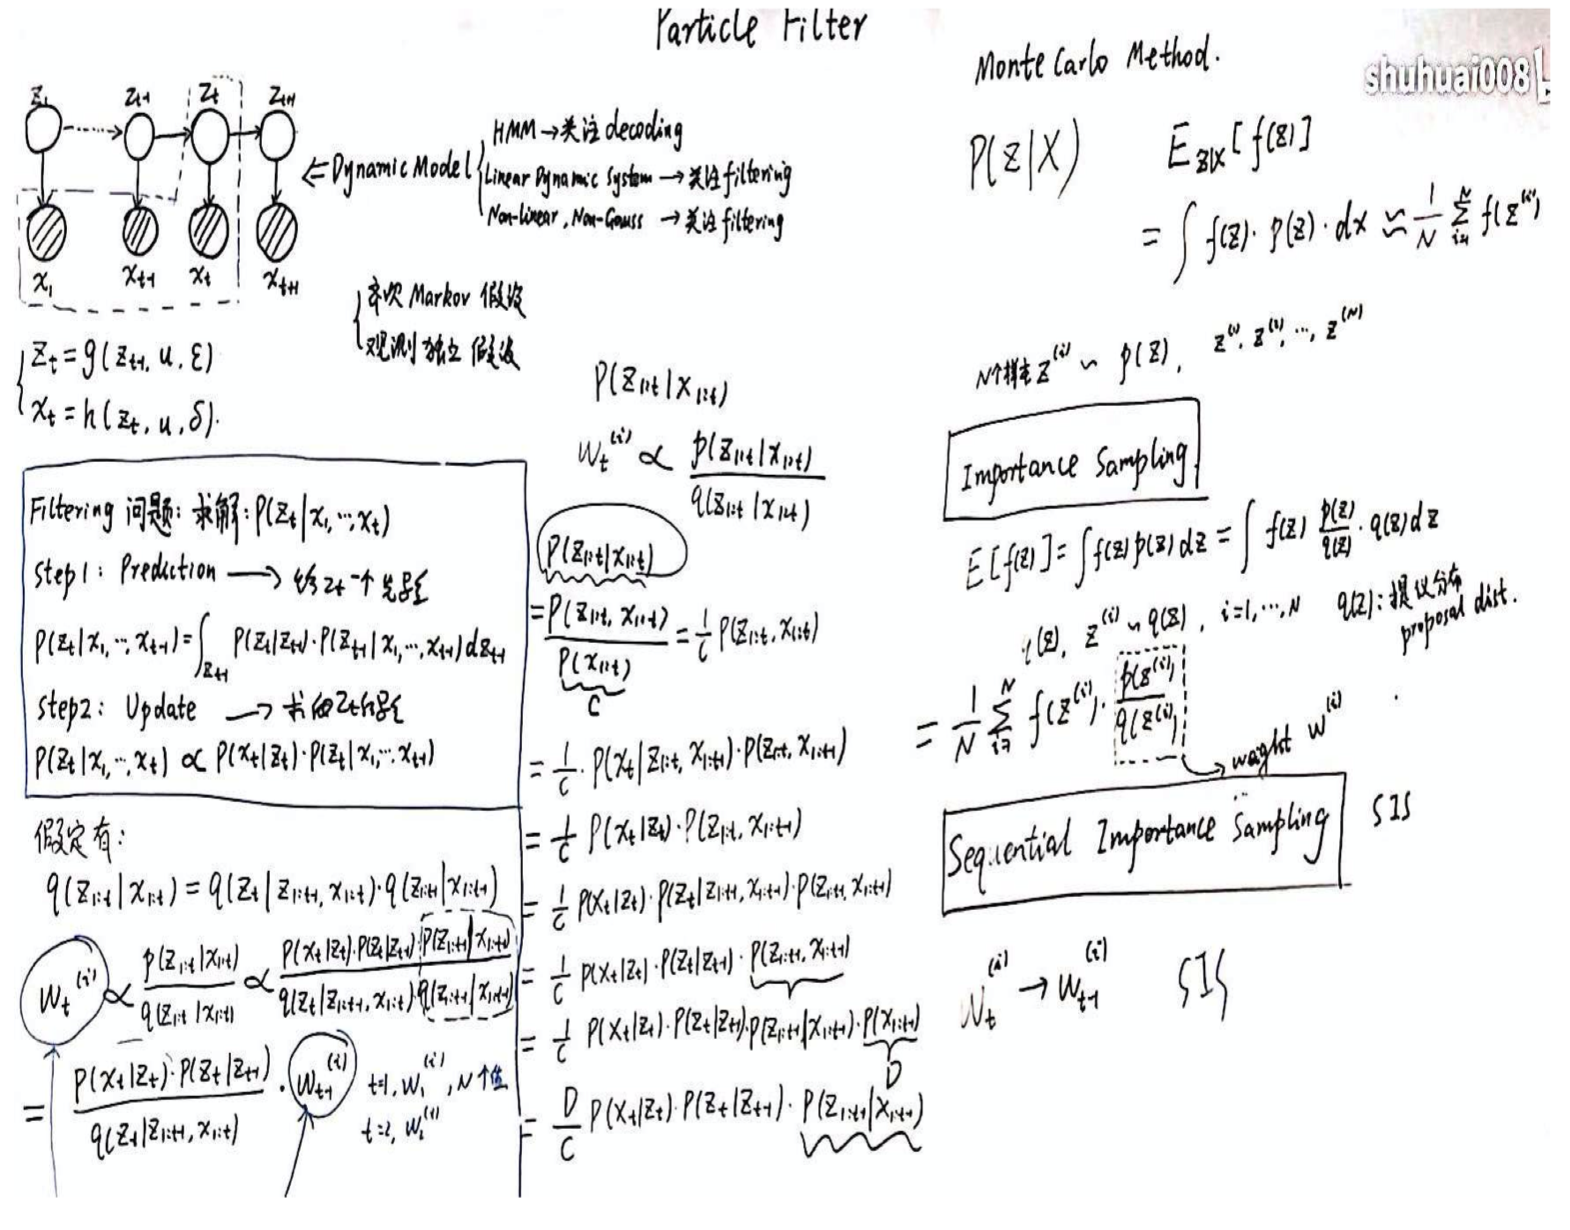 Particle Filter
shuhuai008
z₁ z_{t-1} z_t z_{t+1}
x₁ x_{t-1} x_t x_{t+1}
⇐ Dynamic Model
HMM → 关注 decoding
Linear Dynamic System → 关注 filtering
Non-linear, Non-Gauss → 关注 filtering
齐次 Markov 假设
观测独立假设
z_t = g(z_{t-1}, u, ε)
x_t = h(z_t, u, δ).
Filtering 问题: 求解: P(z_t|x₁,…,x_t)
Step1: Prediction → 给 z_t 一个先验
P(z_t|x₁,…,x_{t-1}) = ∫_{z_{t-1}} P(z_t|z_{t-1})·P(z_{t-1}|x₁,…,x_{t-1}) dz_{t-1}
Step2: Update →
P(z_t|x₁,…,x_t) ∝ P(x_t|z_t)·P(z_t|x₁,…,x_{t-1})
假定有:
q(z_{1:t}|x_{1:t}) = q(z_t|z_{1:t-1}, x_{1:t})·q(z_{1:t-1}|x_{1:t-1})
w_t^{(i)} ∝ p(z_{1:t}|x_{1:t}) / q(z_{1:t}|x_{1:t}) ∝ P(x_t|z_t)·P(z_t|z_{t-1})·P(z_{1:t-1}|x_{1:t-1}) / q(z_t|z_{1:t-1}, x_{1:t})·q(z_{1:t-1}|x_{1:t-1})
= P(x_t|z_t)·P(z_t|z_{t-1}) / q(z_t|z_{1:t-1}, x_{1:t}) · w_{t-1}^{(i)}
t=1, w₁^{(i)}, N个值
t=2, w₂^{(i)}
P(z_{1:t}|x_{1:t})
w_t^{(i)} ∝ p(z_{1:t}|x_{1:t}) / q(z_{1:t}|x_{1:t})
P(z_{1:t}|x_{1:t})
= P(z_{1:t}, x_{1:t}) / P(x_{1:t}) = 1/C P(z_{1:t}, x_{1:t})
C
= 1/C · P(x_t|z_{1:t}, x_{1:t-1})·P(z_{1:t}, x_{1:t-1})
= 1/C P(x_t|z_t)·P(z_{1:t}, x_{1:t-1})
= 1/C P(x_t|z_t)·P(z_t|z_{1:t-1}, x_{1:t-1})·P(z_{1:t-1}, x_{1:t-1})
= 1/C P(x_t|z_t)·P(z_t|z_{t-1})·P(z_{1:t-1}, x_{1:t-1})
= 1/C P(x_t|z_t)·P(z_t|z_{t-1})·P(z_{1:t-1}|x_{1:t-1})·P(x_{1:t-1})
D
= D/C P(x_t|z_t)·P(z_t|z_{t-1})·P(z_{1:t-1}|x_{1:t-1})
Monte Carlo Method.
P(z|X) E_{z|X}[f(z)]
= ∫ f(z)·p(z)·dx ≈ 1/N Σ_{i=1}^N f(z^{(i)})
N个样本 z^{(i)} ~ p(z), z^{(1)}, z^{(2)}, …, z^{(N)}
Importance Sampling
E[f(z)] = ∫f(z)p(z)dz = ∫ f(z) p(z)/q(z) · q(z)dz
q(z), z^{(i)} ~ q(z), i=1,…,N
q(z): 提议分布
proposal dist.
= 1/N Σ_{i=1}^N f(z^{(i)})· p(z^{(i)}) / q(z^{(i)})
weight w^{(i)}
Sequential Importance Sampling SIS
w_t^{(i)} → w_{t-1}^{(i)} SIS